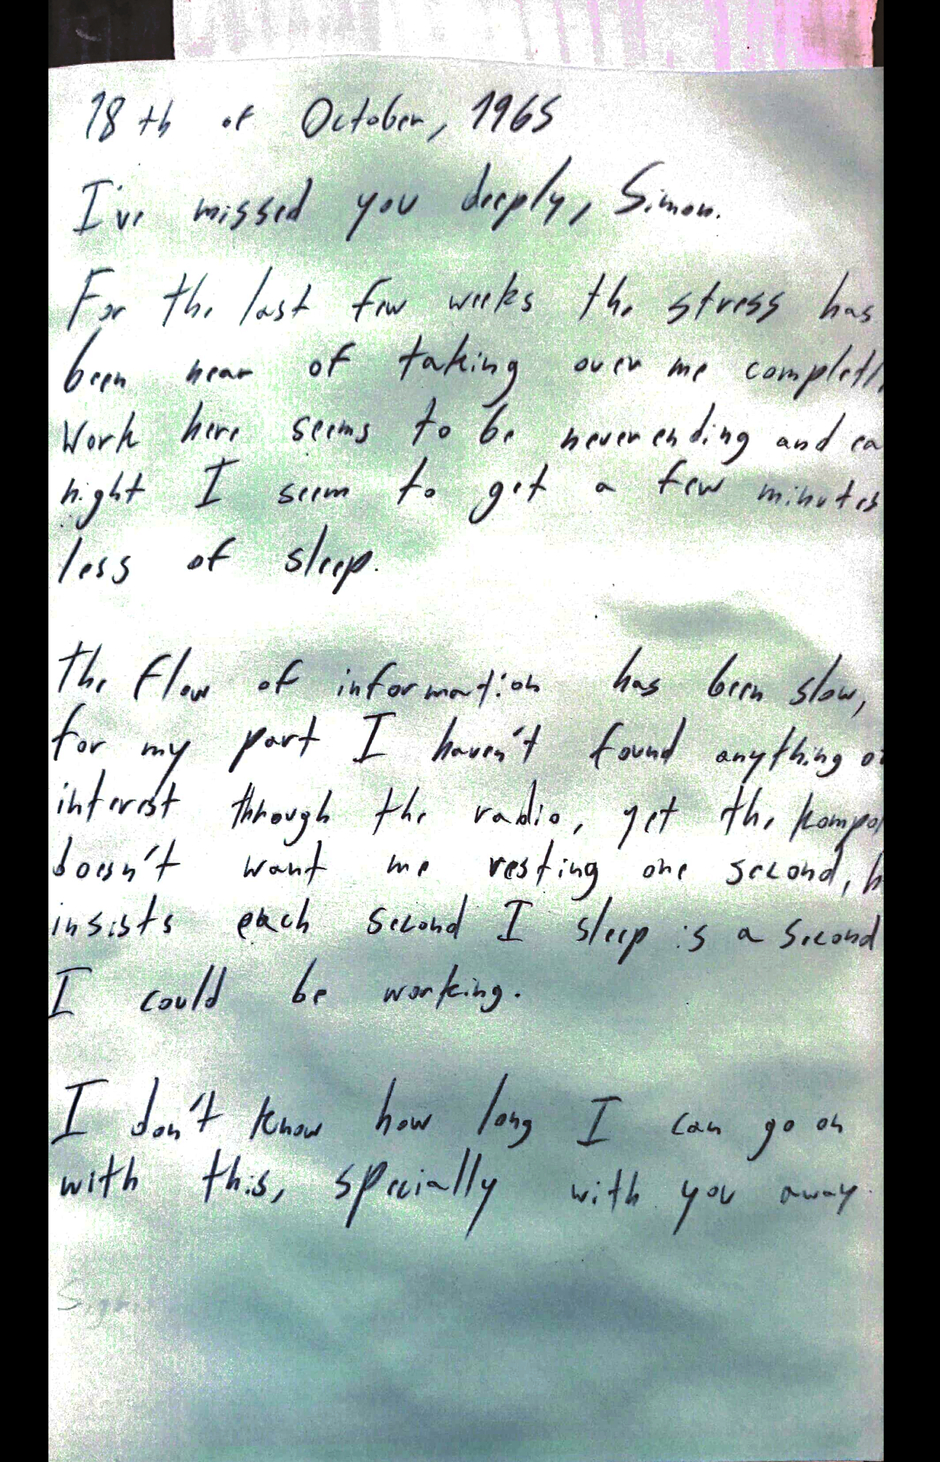 18th of October, 1965
I've missed you deeply, Simon.
For the last few weeks the stress has
been near of taking over me completl
Work here seems to be neverending and ea
night I seem to get a few minutes
less of sleep.
The flow of information has been slow,
for my part I haven't found anything of
interest through the radio, yet the kompo
doesn't want me resting one second, h
insists each second I sleep is a second
I could be working.
I don't know how long I can go on
with this, specially with you away.